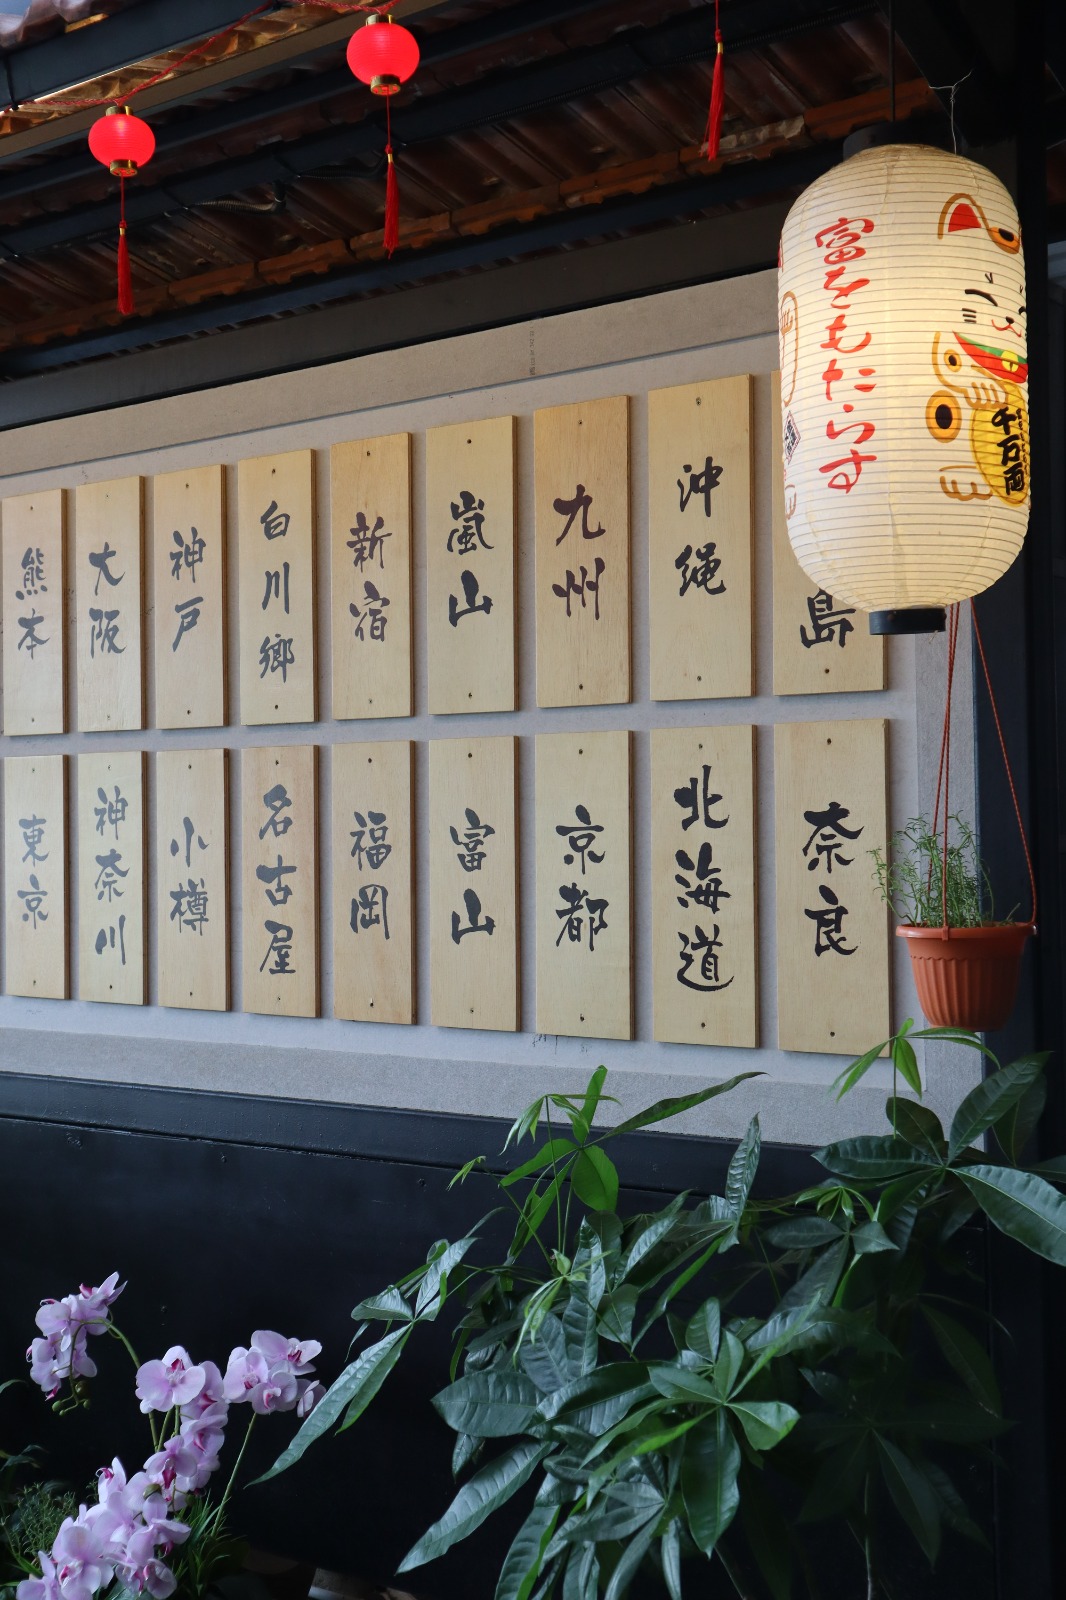 熊本
大阪
神戸
白川郷
新宿
嵐山
九州
沖縄
島
東京
神奈川
小樽
名古屋
福岡
富山
京都
北海道
奈良
富をもたらす
千万両